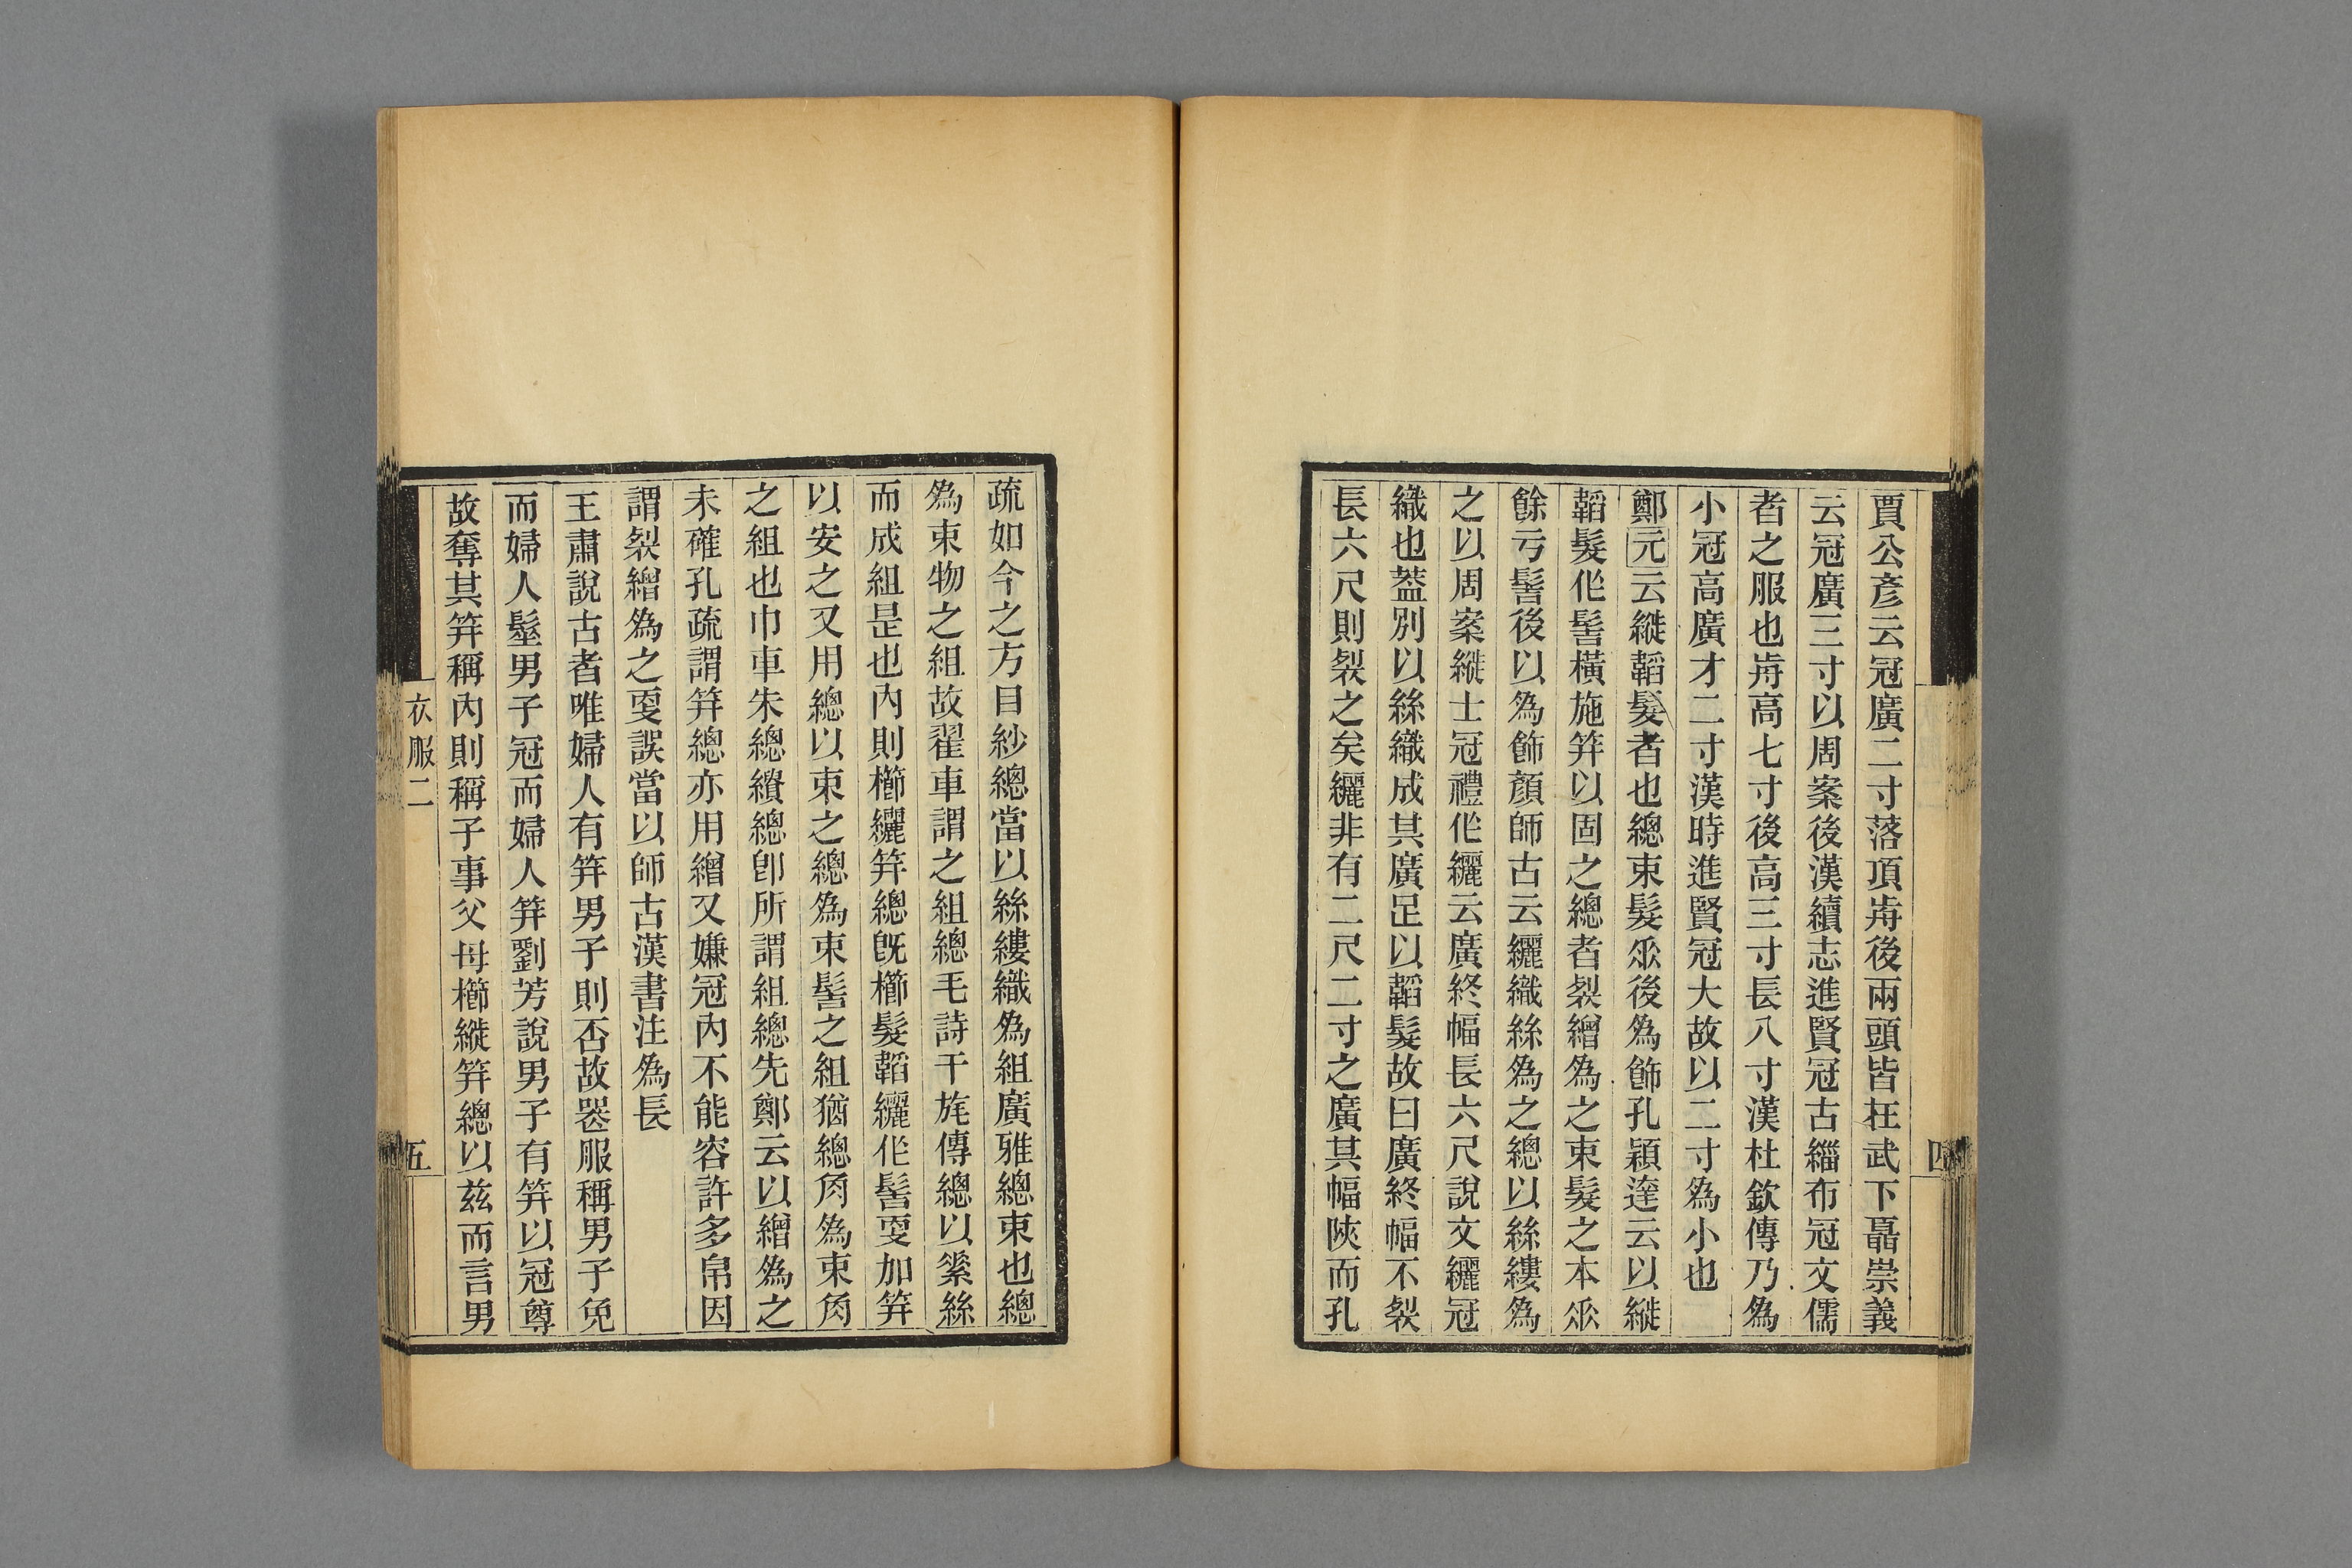 賈公彥云冠廣二寸落頂歬後兩頭皆在武下聶崇義
云冠廣三寸以周案後漢續志進賢冠古緇布冠文儒
者之服也歬高七寸後高三寸長八寸漢杜欽傳乃為
小冠高廣才二寸漢時進賢冠大故以二寸為小也
鄭元云縰韜髮者也總束髮𠂹後為飾孔穎達云以縰
韜髮作髻橫施笄以固之總者裂繒為之束髮之本𠂹
餘亏髻後以為飾顏師古云纚織絲為之總以絲縷為
之以周案縰士冠禮作纚云廣終幅長六尺說文纚冠
織也葢別以絲織成其廣足以韜髮故曰廣終幅不裂
長六尺則裂之矣纚非有二尺二寸之廣其幅陜而孔
四
疏如今之方目紗總當以絲縷織為組廣雅總束也總
為束物之組故翟車謂之組總毛詩干旄傳總以素絲
而成組是也內則櫛纚笄總旣櫛髮韜纚作髻耍加笄
以安之又用總以束之總為束髻之組猶總角為束角
之組也巾車朱總繢總卽所謂組總先鄭云以繒為之
未確孔疏謂笄總亦用繒又嫌冠內不能容許多帛因
謂裂繒為之耍誤當以師古漢書注為長
王肅說古者唯婦人有笄男子則否故喪服稱男子免
而婦人髽男子冠而婦人笄劉芳說男子有笄以冠尊
故奪其笄稱內則稱子事父母櫛縰笄總以茲而言男
衣服二
五